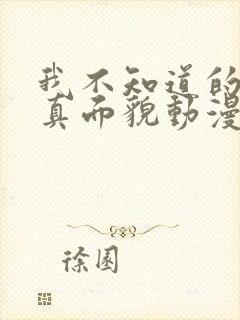 我不知道的
真而貌動漫
徐園